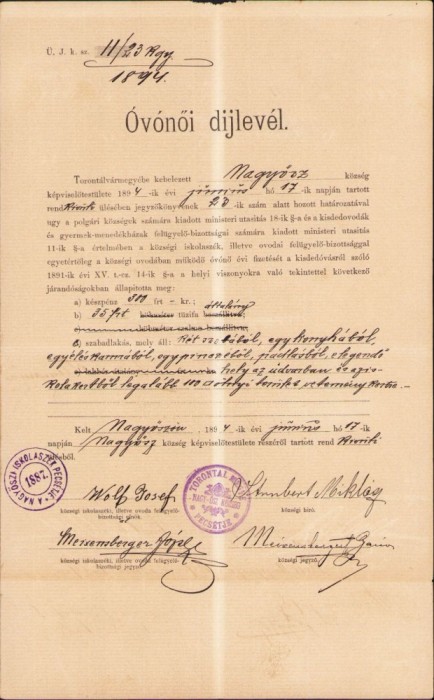 Ü. J. k. sz. 11/23 Rgy.
1894.
Óvónői dijlevél.
Torontálvármegyébe kebelezett Nagyősz község
képviselőtestülete 1894-ik évi június hó 17-ik napján tartott
rend ülésében jegyzőkönyvének 23-ik szám alatt hozott határozatával
ugy a polgári községek számára kiadott ministeri utasitás 18-ik §-a és a kisdedovodák
és gyermek-menedékházak felügyelő-bizottságai számára kiadott ministeri utasitás
11-ik §-a értelmében a községi iskolaszék, illetve ovodai felügyelő-bizottsággal
egyetértőleg a községi ovodában működő óvónő évi fizetését a kisdedóvásról szóló
1891-ik évi XV. t.-cz. 14-ik §-a a helyi viszonyokra való tekintettel következő
járandóságokban állapitotta meg:
a) készpénz 300 frt – kr.; átalány
b) 35 frt köbméter tüzifa
c) szabadlakás, mely áll: Két szobából, egy konyhából,
egy éléskamrából, egy pinczéből, padlásból, elegendő
hely az udvarban és
legalább 100
Kelt Nagyőszön, 1894-ik évi június hó 17-ik
napján Nagyősz község képviselőtestülete részéről tartott rend
ülésből.
A NAGYŐSZI ISKOLASZÉK PECSÉTJE
1887.
TORONTÁL
PECSÉTJE
Wolf Josef Stumbert Miklós
községi iskolaszéki, illetve ovoda felügyelő-
bizottsági elnök.
községi biró.
Messensberger
községi iskolaszéki, illetve ovoda felügyelő-
bizottsági jegyző.
községi jegyző.